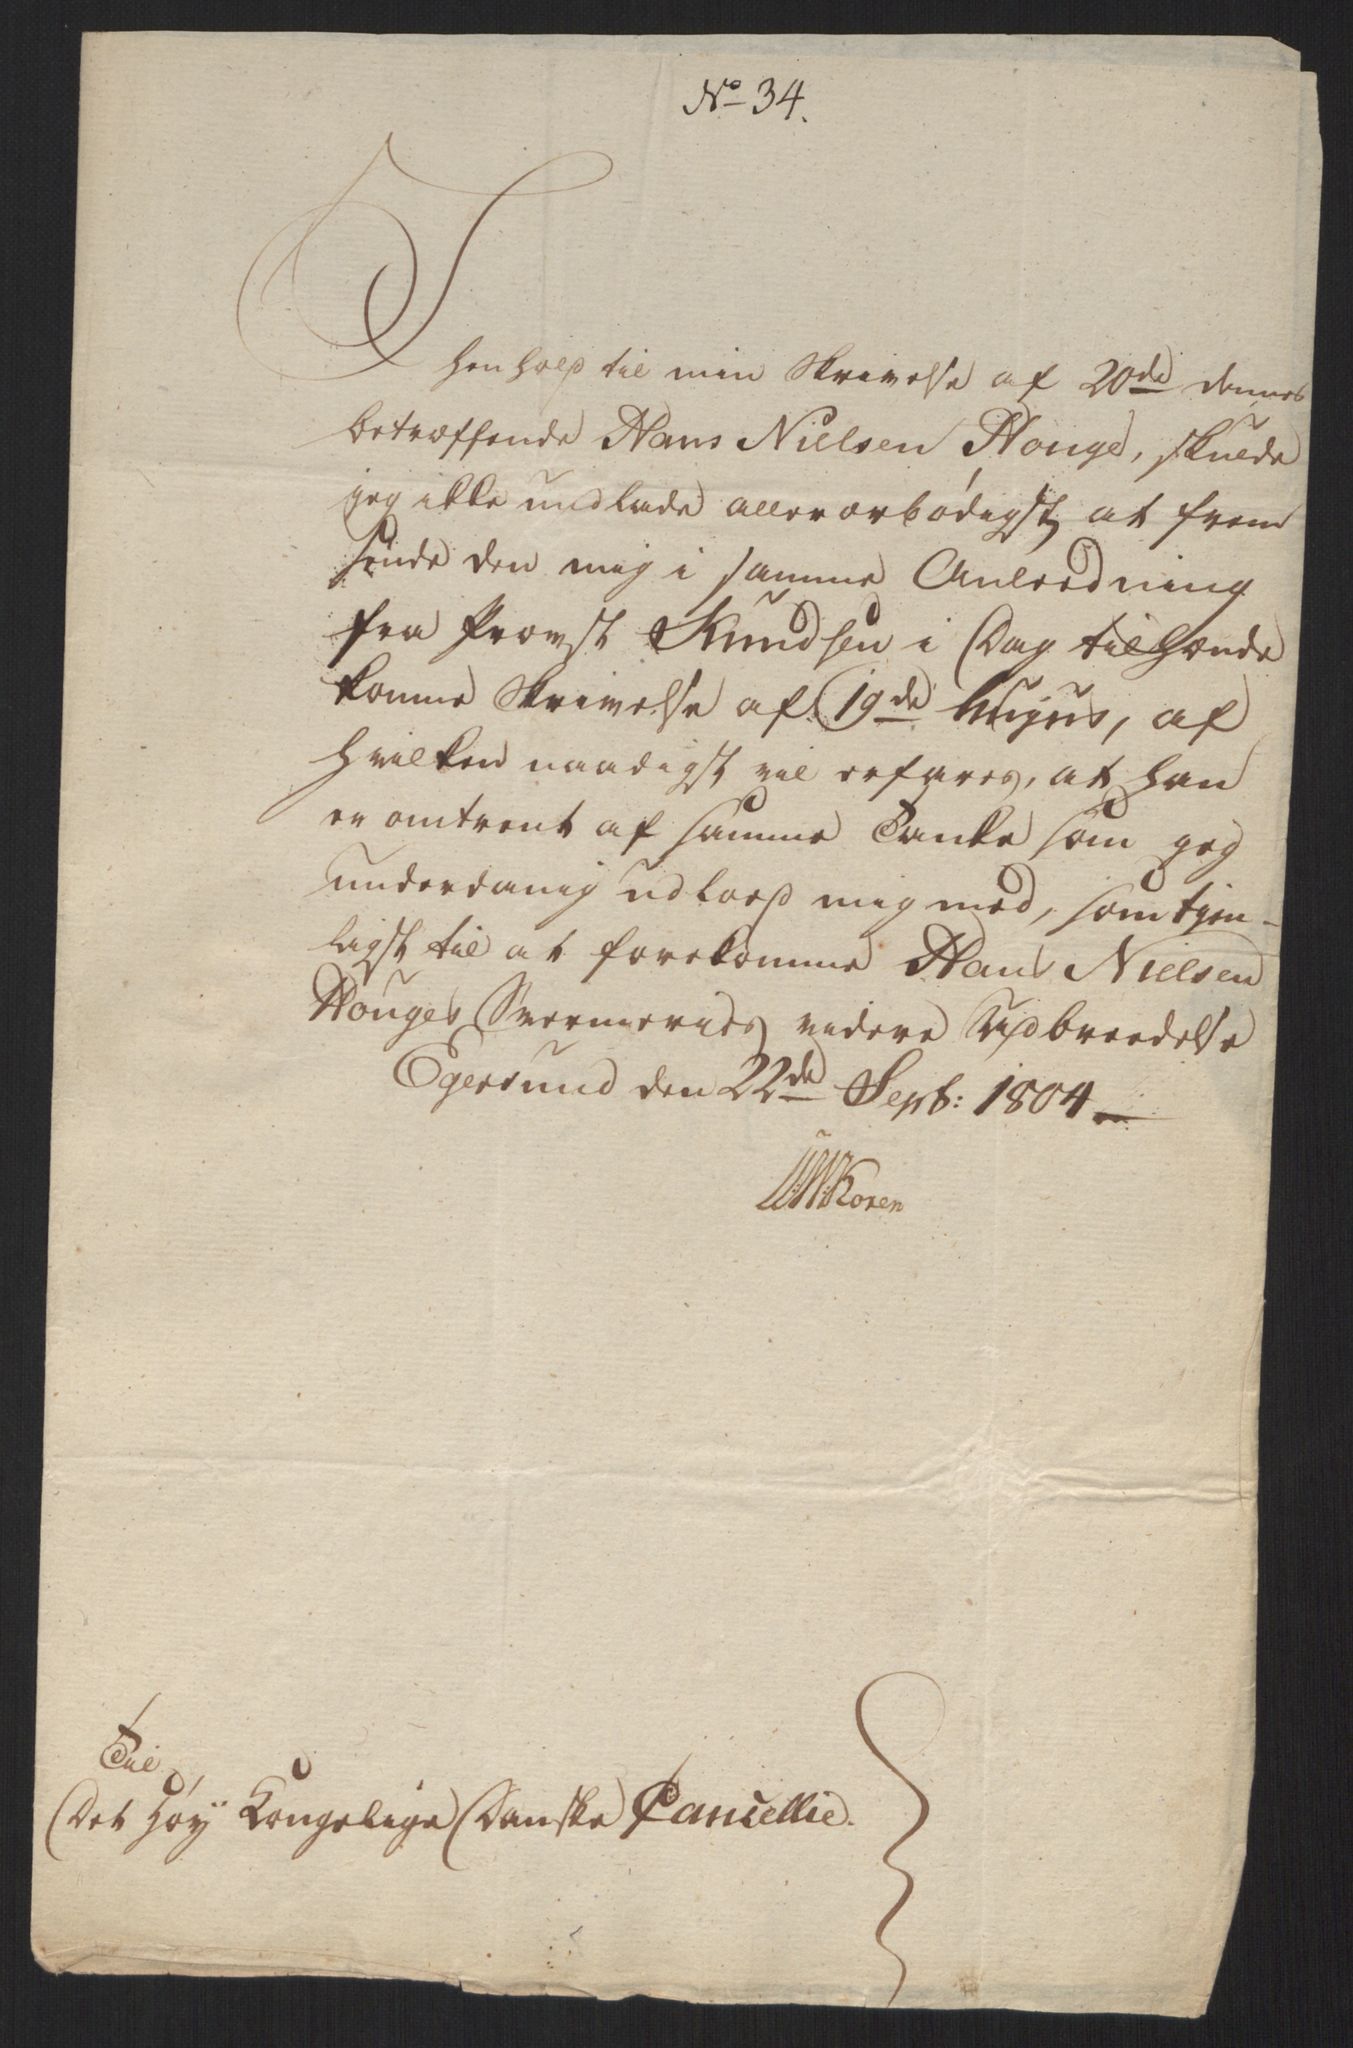 No 34.
I
henhold til min Skrivelse af 20de dennes
betræffende Hans Nielsen Houge, skulde
jeg ikke undlade allerærbødigst at frem
sende den mig i samme Anledning
fra Provst Knudsen i Dag tilhænde
komne Skrivelse af 19de hujus, af
hvilken naadigst vil erfares, at han
er omtrent af samme Tanke som jeg
underdanig udlod mig med, som tjen-
ligst til at forekomme Hans Nielsen
Houges Sværmeries videre Udbreedelse
Egersund den 22de Sept: 1804
U:W:Koren
Til
Det Høÿ Kongelige Danske Cancellie.